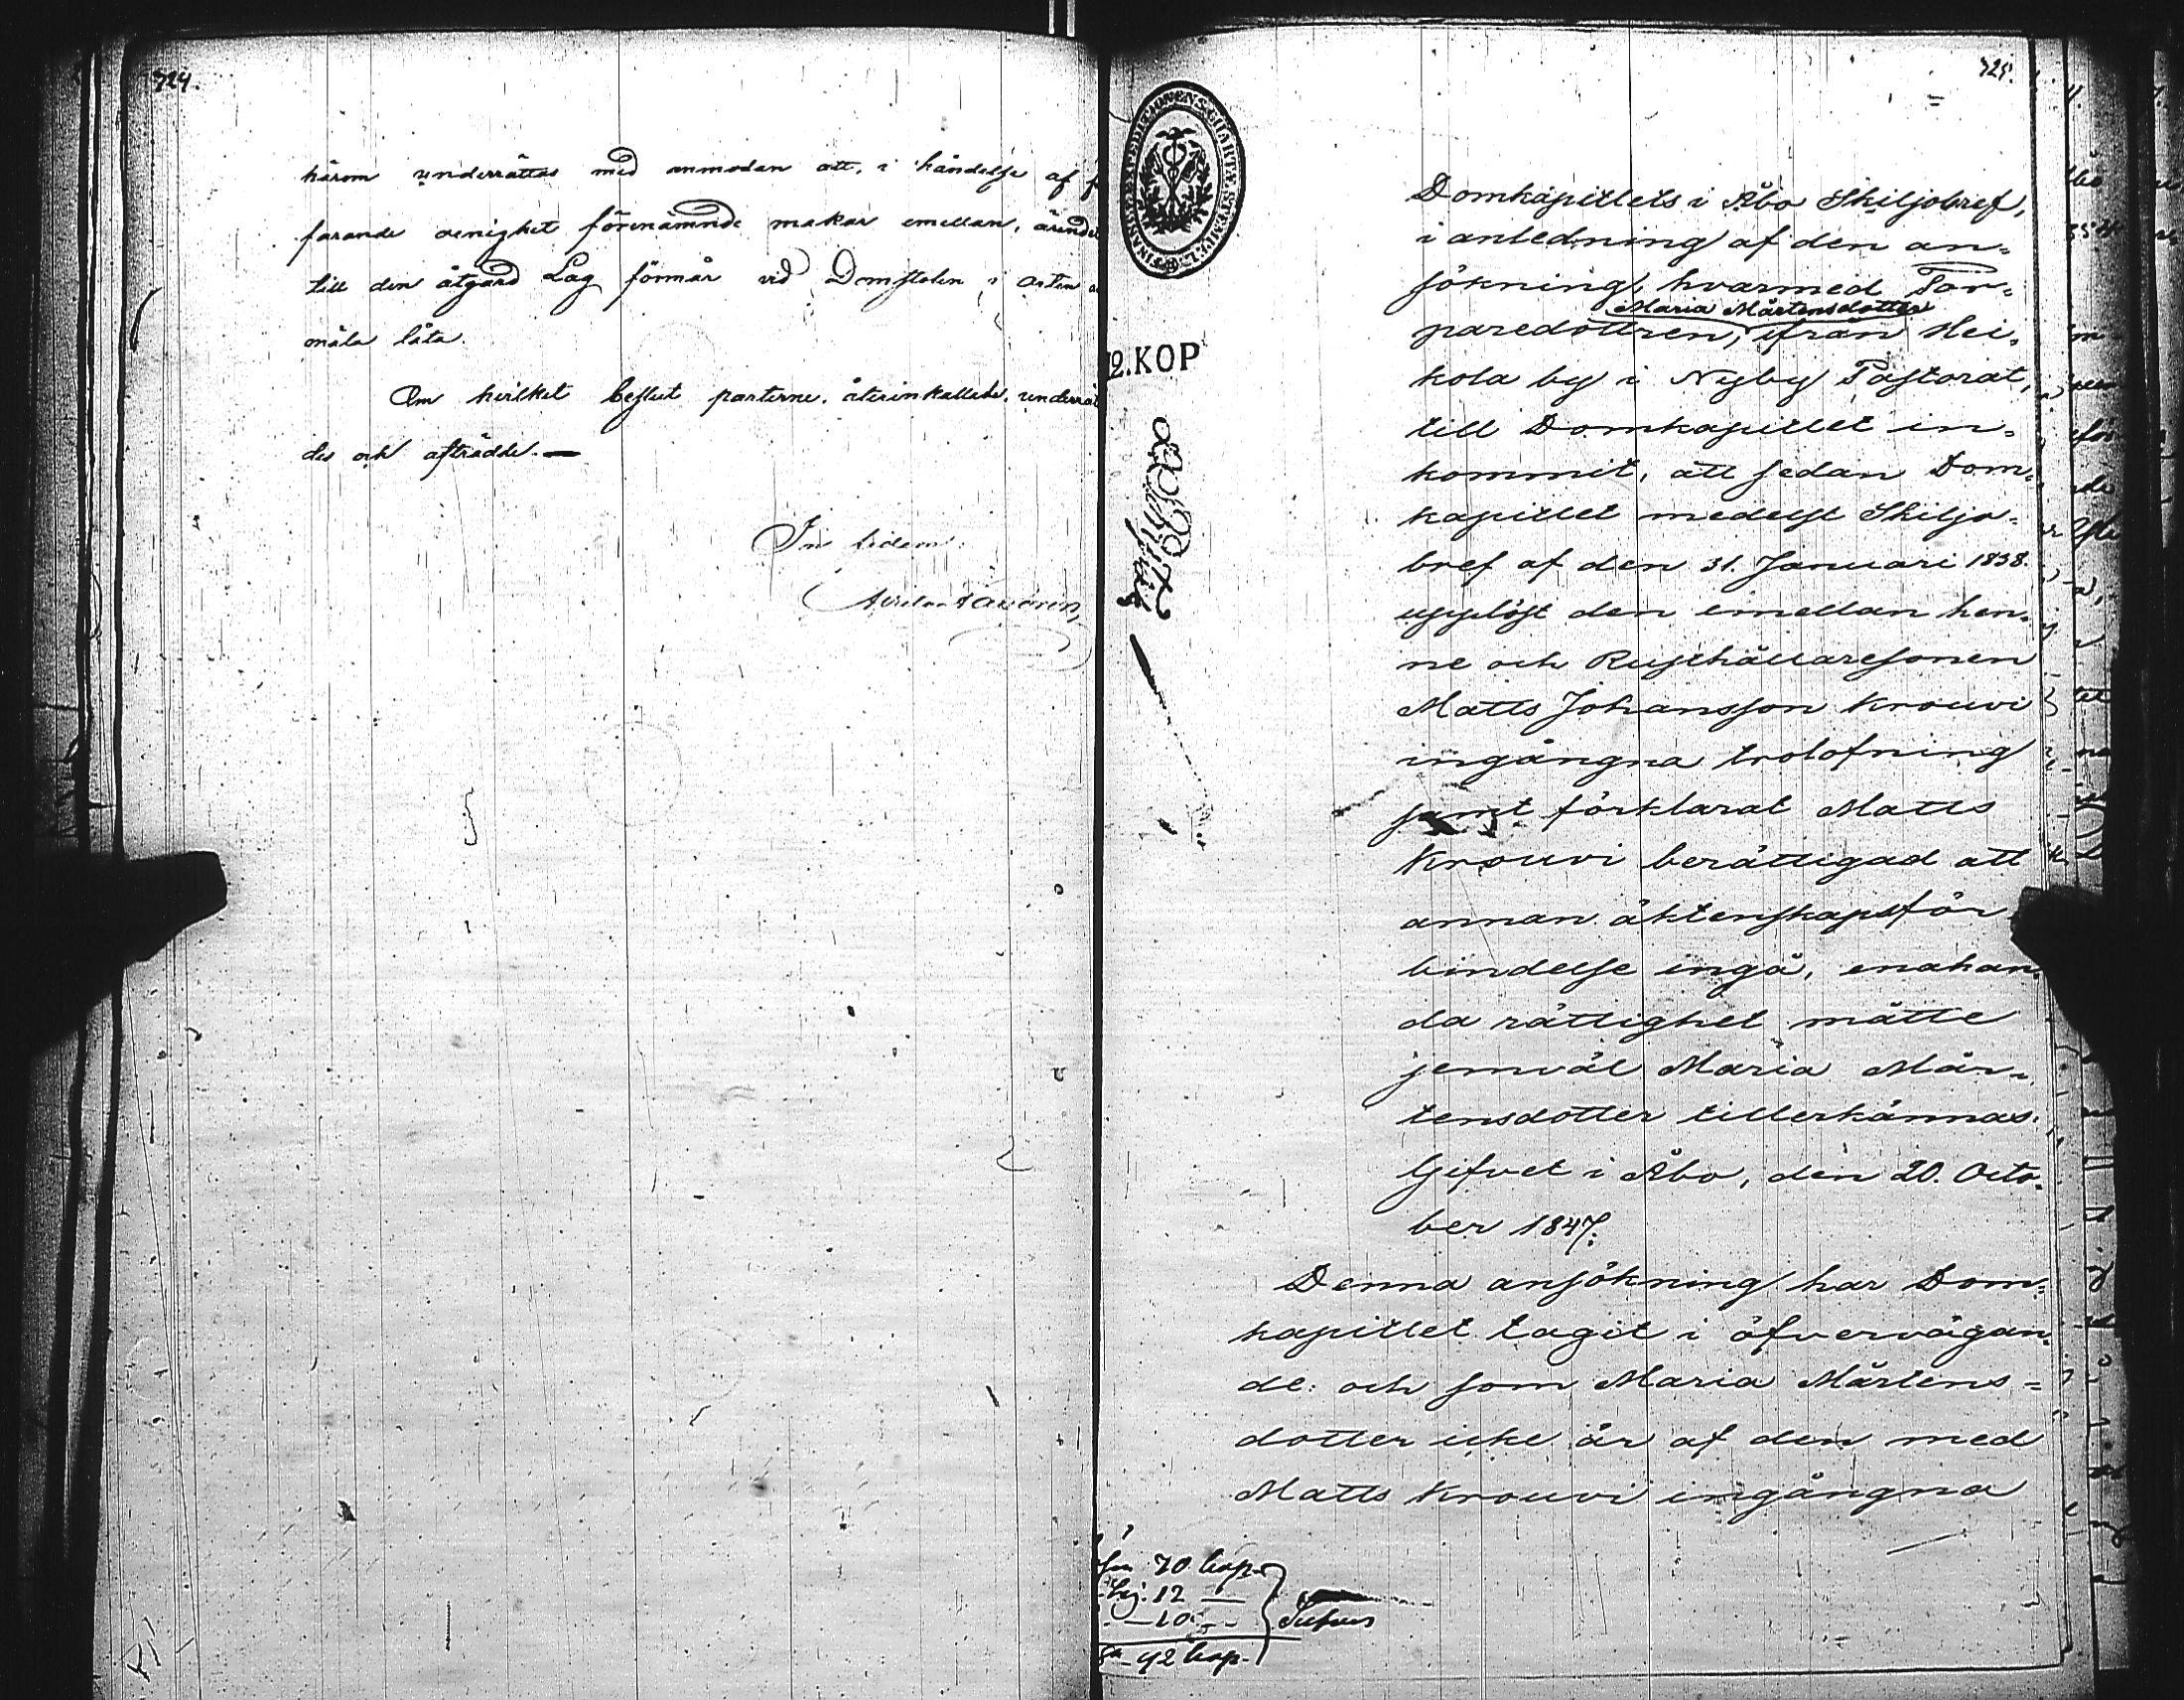 724.
härom underrättas med anmodan att, i händelse af
farande oenighet förenämnde makar emellan, ärendet
till den åtgärd Lag förmår vid Domstolen i orten
mäla låta.
Om hvilket beslut parterne, återinkallade, underrät
des och afträdde.—
In fidem:
725.
FINANS EXPEDITIONENS CHARTÆ SIGILL
12.KOP
Domkapitlets i Åbo Skiljobref,
i anledning af den an=
sökning, hvarmed Tor=
Maria Mårtensdotter
paredottren, ifrån Hei=
kola by i Nyby Pastorat,
till Domkapitlet in=
kommit, att sedan Dom=
kapitlet medelst Skiljo=
bref af den 31. Januari 1838.
upplöst den emellan hen=
ne och Rusthållaresonen
Matts Johansson Krouvi
ingångna trolofning
samt förklarat Matts
Krouvi berättigad att
annan äktenskapsför
bindelse ingå, enahan=
da rättighet måtte
jemväl Maria Mår=
tensdotter tillerkännas.
Gifvet i Åbo, den 20. Octo=
ber 1847.
Denna ansökning har Dom=
kapitlet tagit i öfvervägan=
de: och som Maria Mårtens=
dotter icke är af den med
Matts Krouvi ingångna
70 kop.
12 —
— 10 —
92 kop.